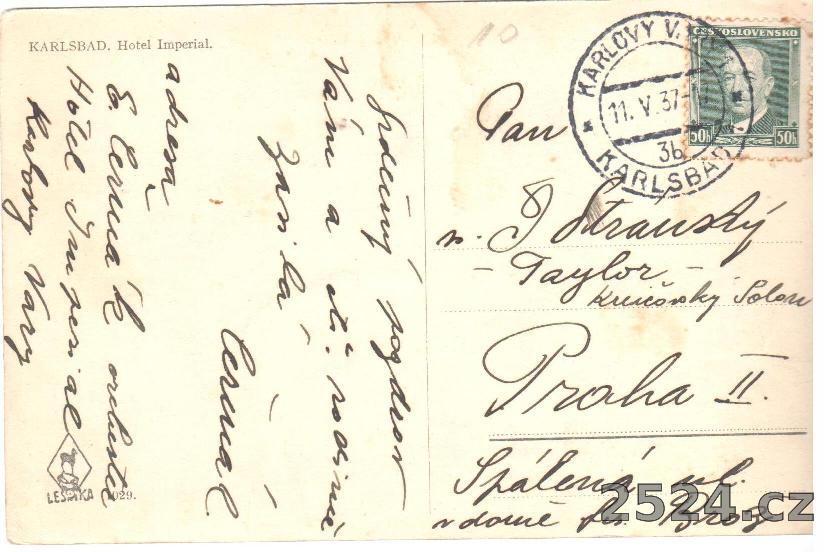 KARLSBAD, Hotel Imperial.
Srdečný pozdrav
Vám a ct. rodině
zasílá
Čermák
adresa
E. Čermák orchestr
Hotel Imperial
Karlovy Vary
LESETKA 1929.
KARLOVY VARY
11. V. 37
3b
KARLSBAD
ČESKOSLOVENSKO
50h 50h
Pan
J Stránský
- Taylor -
Krejčovský Salon
Praha II.
Spálená ul.
v domě
2524.cz